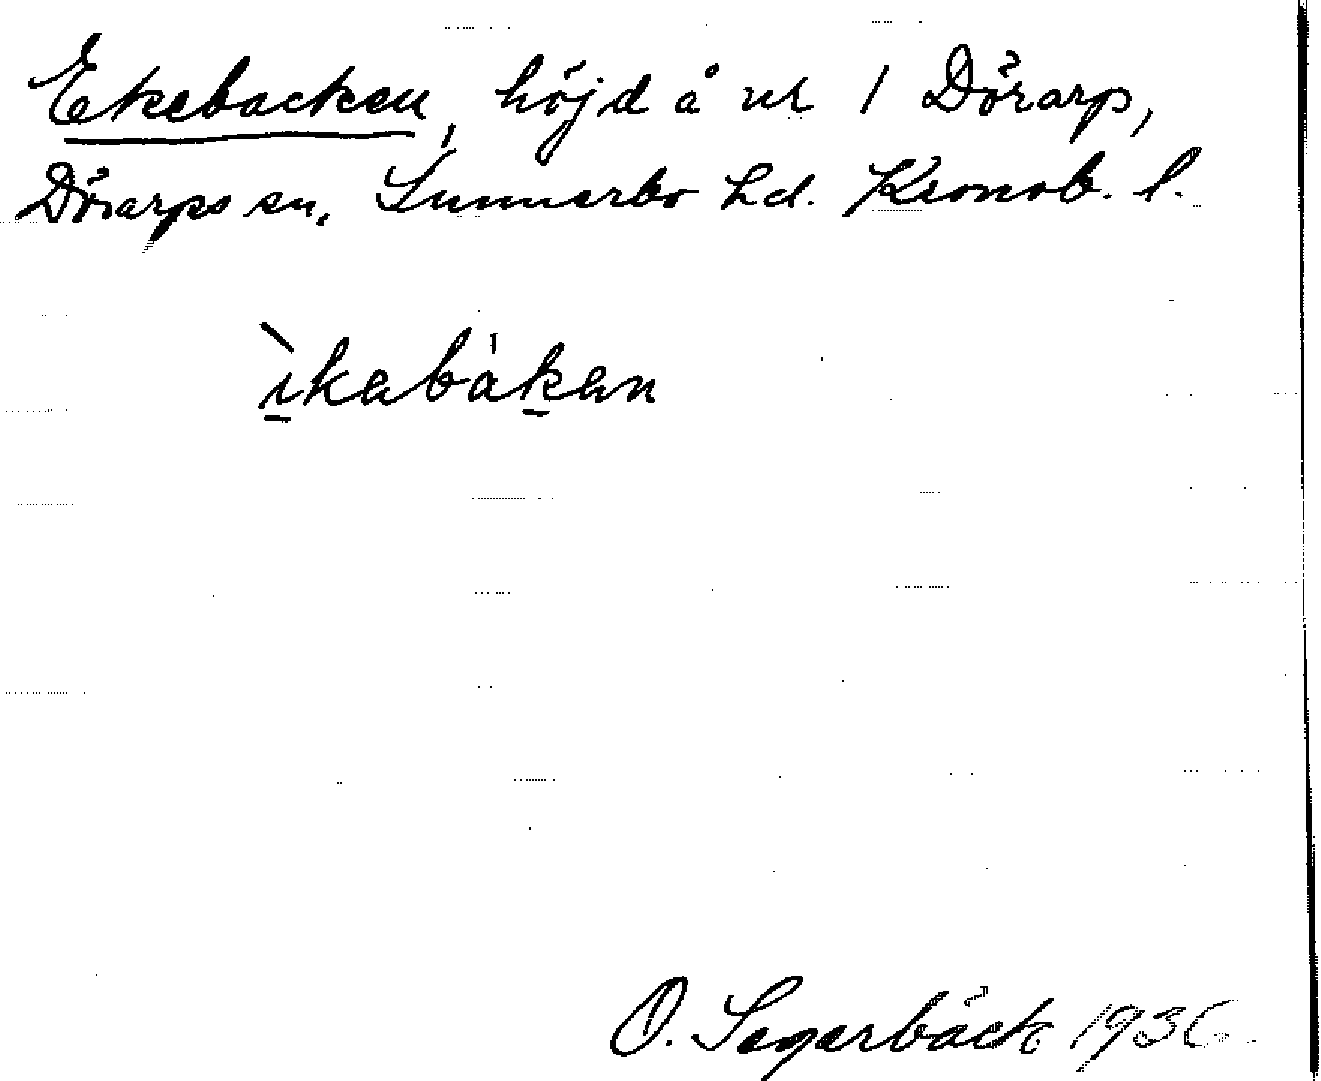 Ekebacken, höjd å nr 1 Dörarp,
Dörarps sn, Sunnerbo hd. Kronob. l.
ìkabákan
O. Segerbäck 1936